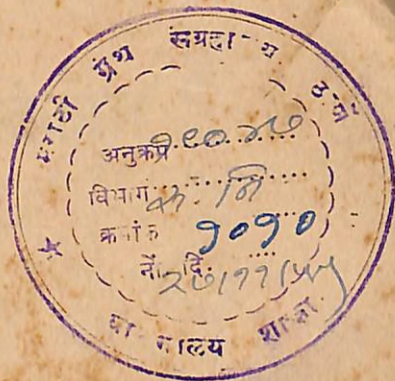 मराठी ग्रंथ संग्रहा य ठाणें
अनुक्रम १९०४७
विभाग
क्रमांक १०१०
नों. दि. २७।११।५५
वा नालय शाखा